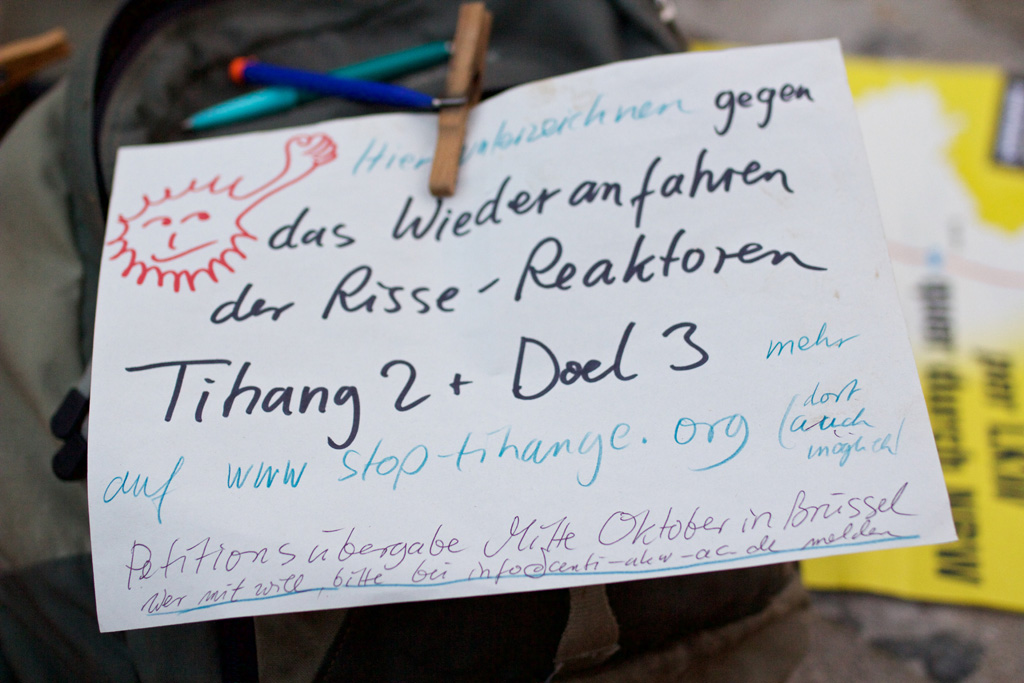 Hier unterzeichnen gegen
das Wiederanfahren
der Risse-Reaktoren
Tihang 2 + Doel 3 mehr
auf www stop-tihange.org (dort
auch
möglich)
Petitionsübergabe Mitte Oktober in Brüssel
Wer mit will, bitte bei info@anti-akw-ac.de melden
per LKW
nur durch NRW